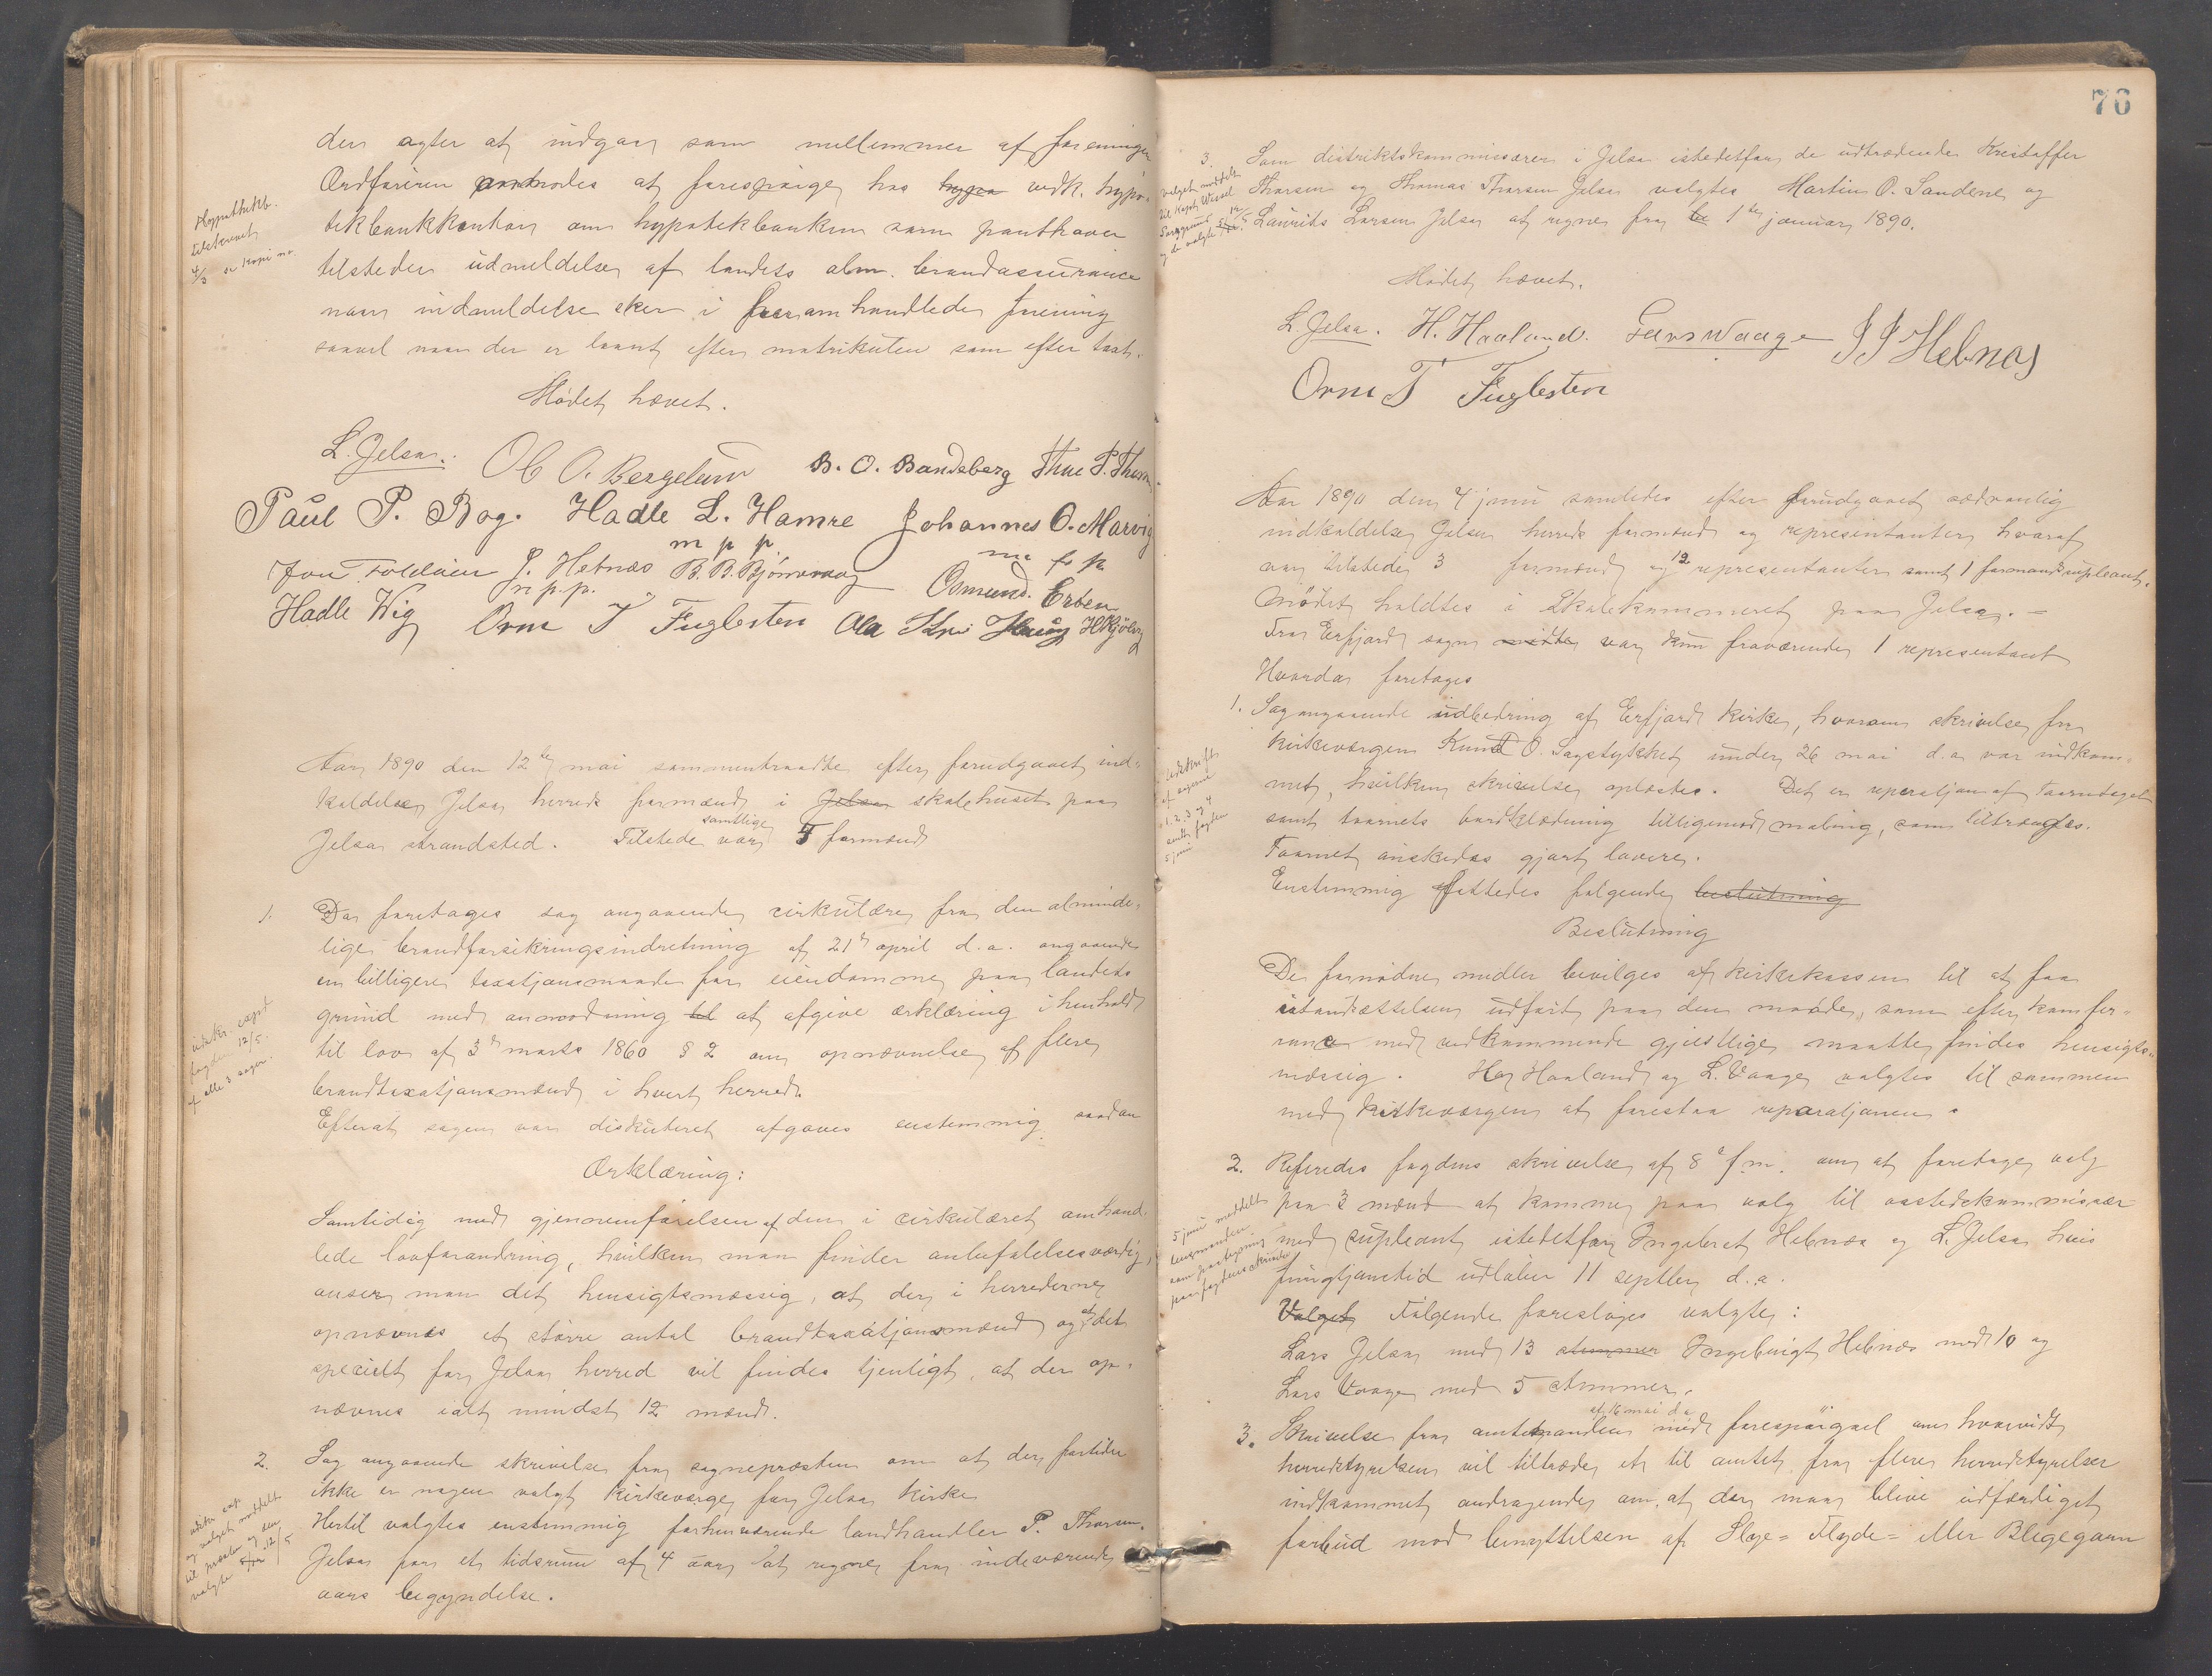 der agter at indgaa som medlemmer af foreningen
Ordføreren anmodes at forespørge hos hypo vedk. hypo-
tekbankkontor om hypotekbanken som panthaver
tilsteder udmeldelse af landets alm. brandassurance
naar indmeldelse sker i foromhandlede forening
saavel naar der er laant efter matrikulen som efter taxt.
Hypothekb.
tilskrevet
4/3 se kopi no.
Mødet hævet.
L. Jelsa. Ole O. Bergelum B. O. Bandeberg Thue P. Thuesen
Paul P. Bog. Hadle L. Hamre Johannes O. Marvig
m p p m f p
Jon Foldøien J. Hebnæs B. B. Bjönevaag Osmund. Erben
m.p.p.
Hadle Wig Orm T Fuglesten Ola H Kjölvig
Aar 1890 den 12te mai sammentraadte efter forudgaaet ind-
kaldelse Jelsa herreds formænd i Jelsa skolehuset paa
Jelsa strandsted. Tilstede var samtlige 5 formænd
1. Da foretages sag angaaende cirkulære fra den alminde-
lige brandforsikringsindretning af 21de april d.a. angaaende
en billigere taxatjonsmaade for eiendomme paa landets
grund med anmodning til at afgive erklæring i henhold
til lov af 3de marts 1860 § 2 om opnævnelse af flere
brandtaxatjonsmænd i hvert herred.
Efterat sagen var diskuteret afgaves enstemmig saadan
udskr. expd
fogden 12/5.
af alle 3 sager.
Erklæring:
Samtidig med gjennemførelsen af den i cirkulæret omhand-
lede lovforandring, hvilken man finder anbefalelsesværdig,
anser man det hensigtsmæssig, at der i herrederne
opnævnes et større antal brandtaxatjonsmænd og at det
specielt for Jelsa herred vil findes tjenligt, at der op-
nævnes ialt mindst 12 mænd.
2. Sag angaaende skrivelse fra sognepræsten om at der fortiden
ikke er nogen valgt kirkeværge for Jelsa kirke
Hertil valgtes enstemmig forhenværende landhandler P. Thorsen
Jelsa for et tidsrum af 4 aar at regne fra indeværende
aars begyndelse.
udskr. exp.
og valget meddelt
til præsten og den
valgte 12/5
76
3. Som distriktskommissærer i Jelsa istedetfor de udtrædende Kristoffer
Thorsen og Thomas Thorsen Jelsa valgtes Martin O. Sandene og
Laurits Larsen Jelsa at regne fra 1te januar 1890.
Valget meddelt
til Kapt. Wessel
og de valgte
Mødet hævet.
L. Jelsa. H. Haaland. Lars Waage J J Hebnes
Orm T Fuglesten
Aar 1890 den 4 juni samledes efter forudgaaet sædvanlig
indkaldelse Jelsa herreds formænd og representanter hvoraf
var tilstede 3 formænd og 12 representanter samt 1 formandssupleant.
Mødet holdtes i skolekammeret paa Jelsa. –
Fra Erfjord sogn mødte var kun fraværende 1 representant
Hvorda foretages
1. Sag angaaende udbedring af Erfjord kirke, hvorom skrivelse fra
kirkeværgen Knud O. Tagstykket under 26 mai d.a. var indkom-
met, hvilken skrivelse oplæstes. Det er reparatjon af taarntaget
samt taarnets bordklædning tilligemed maling, som tiltrænges.
Taarnet ønskedes gjort lavere.
Enstemmig fattedes følgende beslutning
udskrift
af sagene
1. 2. 3 og 4
sendt fogden
5 juni
Beslutning
De fornødne midler bevilges af kirkekassen til at faa
istandsættelsen udført paa den maade, som efter konfer-
rance med vedkommende gjeistlige maatte findes hensigts-
mæssig. H. Haaland og L. Vaage valgtes til sammen
med kirkeværgen at forestaa reparatjonen.
2. Refereres fogdens skrivelse af 8de f.m. om at foretage valg
paa 3 mænd at komme paa valg til aastedskommissær
med supleant istedetfor Ingebret Hebnæs og L. Jelsa hvis
fungtjonstid udløber 11 septbr. d.a.
Valget Følgende foresloges valgte:
Lars Jelsa med 13 stemmer Ingebrigt Hebnæs med 10 og
Lars Vaage med 5 stemmer.
5 juni meddelt
lensmanden
som paategning
paa fogdens skrivelse
3. Skrivelse fra amtmanden af 16 mai d.a. med forespørgsel om hvorvidt
herredstyrelsen vil tiltræde et til amtet fra flere herredstyrelser
indkommet andragende om, at der maa blive udfærdiget
forbud mod benyttelsen af Slye= Flyde= eller Blegegarn